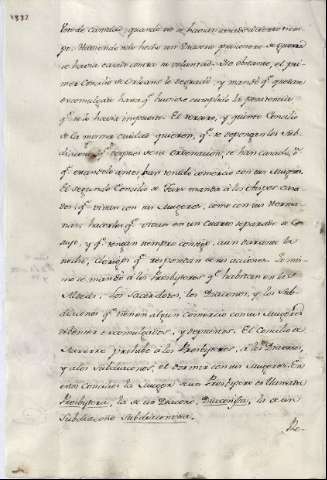 1337
quando no se hacian
po. Haviendo sido hecho un Diacono prisionero de guerra
se havia casado contra su voluntad. No obstante, el pri-
mer Concilio de Orleans lo degradó, y mandó qe quedase
excomulgado hasta qe huviese cumplido la penitencia
qe se le havia impuesto. El tercero, y quinto Concilio
de la misma ciudad quieren, qe se depongan los Sub-
diaconos qe despues de su ordenacion, se han casado, ó
qe estandolo antes han tenido comercio con sus Mugeres.
El segundo Concilio de Tours manda a los Obispos casa-
dos qe vivan con sus Mugeres, como con sus Herma-
nas; hacerlas qe vivan en un cuarto separado de
suyo, y qe tengan siempre consigo, aun durante la
noche, Clerigos qe respondan de sus acciones. Lo mis-
mo se mandó a los Presbyteros qe habitan en las
Aldeas: Los Sacerdotes, los Diaconos, y los Sub-
diaconos qe tienen algun comercio con sus Mugeres
deben ser excomulgados, y depuestos. El Concilio de
prohibe á los Presbyteros, á los Diaconos,
y a los Subdiaconos, el dormir con sus Mugeres. En
estos Concilios la Muger de un Presbytero es llamada
Presbytera, la de un Diacono Diaconisa, la de un
Subdiacono Subdiaconisa.